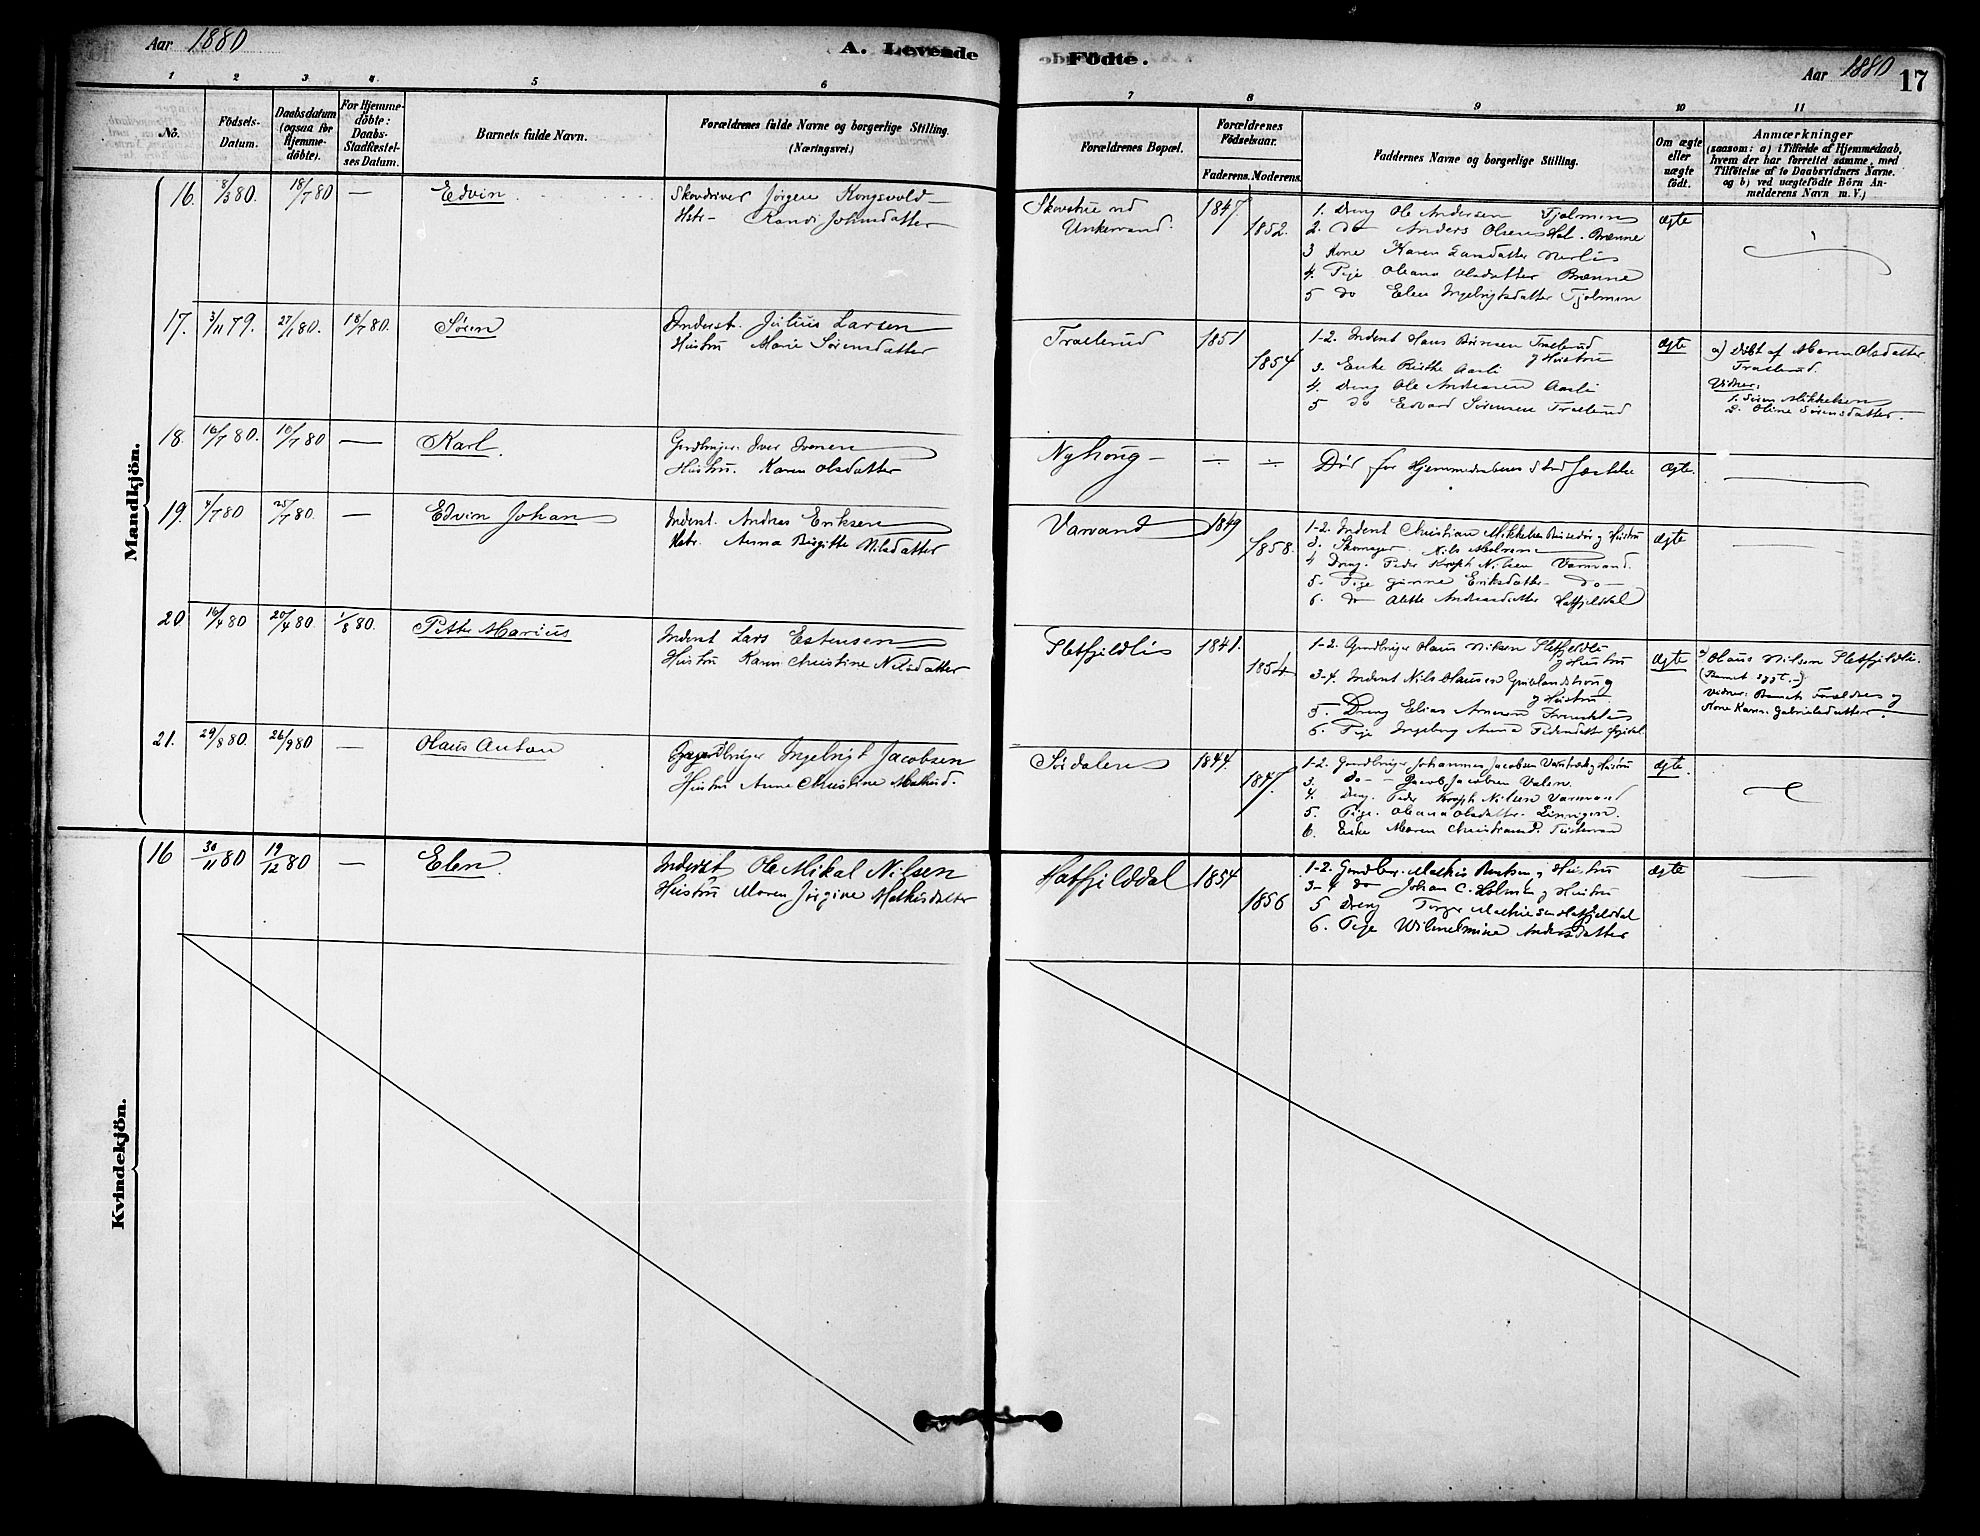 Aar 1880
A. Levende Födte.
Aar 1880
17
1 2 3 4 5 6 7 8 9 10 11
No.
Födsels-
Datum.
Daabsdatum
(ogsaa for
Hjemme-
döbte).
For Hjemme-
döbte:
Daabs-
Stadfæstel-
ses Datum.
Barnets fulde Navn.
Forældrenes fulde Navne og borgerlige Stilling.
(Næringsvei.)
Forældrenes Bopæl.
Forældrenes
Födselsaar.
Faderens. Moderens.
Faddernes Navne og borgerlige Stilling.
Om ægte
eller
uægte
födt.
Anmærkninger
(saasom: a) i Tilfælde af Hjemmedaab,
hvem der har forrettet samme, med
Tilföielse af to Daabsvidners Navne.
og b) ved uægtefödte Börn An-
melderens Navn m. V.)
Mandkjön.
16. 8/3 80. 18/7 80 —
Edvin
Jörgen Kongsvold
Randi Johnsdatter
Unkervand.
1847
1852.
1. Dreng Ole Andersen Fjolmen
2. do Anders Olsen Brænne
3 Kone Karen Larsdatter
4. Pige Oleana Olsdatter Brænne
5 do Elen Ingebrigtsdatter Fjolmen
Ægte
17. 3/11 79. 27/1 80. 18/7 80.
Sören
Inderst. Julius Larsen
Hustru Marie Sörensdatter
Trælerud
1851
1854
1-2. Inderst Hans Trælerud
g Hustru
3. Enke Aarli
4. Dreng Ole Andersen Aarli
5 do Edvard Sörensen Trælerud
Ægte
a) Döbt af Maren Olsdatter
Trælerud.
Vidner:
1. Sören Mikkelsen
2. Oline Sörensdatter —
18. 16/7 80. 10/7 80 —
Karl.
Iver Iversen
Hustru. Karen Olsdatter
Ægte.
19. 4/7 80 25/7 80. —
Edvin Johan
Inderst. Andreas Eriksen
Hstr. Anna Birgitte Nilsdatter
Varvand
1849
1858.
1-2. Inderst Christian Mikkelsen g Hustru
3. Skomager Nils
4 Dreng. Peder Nilsen Varnvand.
5. Pige Eriksdatter — do —
6. do Alette Andreasdatter Hatfjelddal
Ægte
20 16/4 80 20/4 80 1/8 80.
Petter Marius
Inderst Lars Estensen
Hustru Karen Christine Nilsdatter
Sletfjeldli
1841.
1854
1-2. Gaardbruger Olaus Nilsen Sletfjeldli
g Hustru
3-4. Inderst Nils Olausen
g Hustru
5. Dreng Elias Arnesen
6. Pige Ingeborg Anna Pedersdatter
Ægte
a) Olaus Nilsen Sletfjeldli.
Vidner: Barnets Forældre og
Kone Karen Gabrielsdatter.
21. 29/8 80. 26/9 80 —
Olaus Anton
Ingebrigt Jacobsen
Hustru Anne Christine
Sördalen
1844.
1847.
1-2. Gaardbruger Johannes Jacobsen g Hustru
3. do — Jacob Jacobsen Valen.
4. Dreng. Peder Nilsen Varnvand
5. Pige. Oleana Olsdatter
6. Enke Maren
Ægte.
Kvindekjön.
16 30/11 80 19/12 80 —
Elen.
Inderst Ole Mikal Nilsen
Hustru Maren Jörgine Mathisdatter
Hatfjelddal
1854
1856
1-2. Gaardbr. Mathis g Hustru
3-4 do Johan C. Holmen g Hustru
5 Dreng Mathisen Hatfjelddal
6. Pige Wilhelmine Andersdatter
Ægte